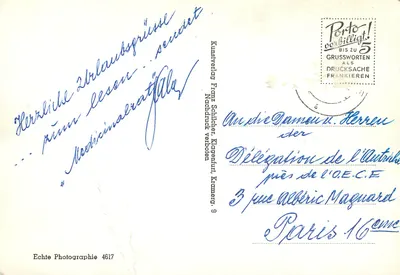 Herzliche Urlaubsgrüsse
... zum lesen ... sendet
"Medizinalrat"
Kunstverlag Franz Schilcher, Klagenfurt, Kramerg. 9
Nachdruck verboten
Echte Photographie 4617
Porto
verbilligt!
5
BIS ZU
GRUSSWORTEN
ALS
DRUCKSACHE
FRANKIEREN
An die Damen u. Herren
der
Délégation de l'Autriche
près de l'O.E.C.E
3 rue Albéric Magnard
Paris 16eme